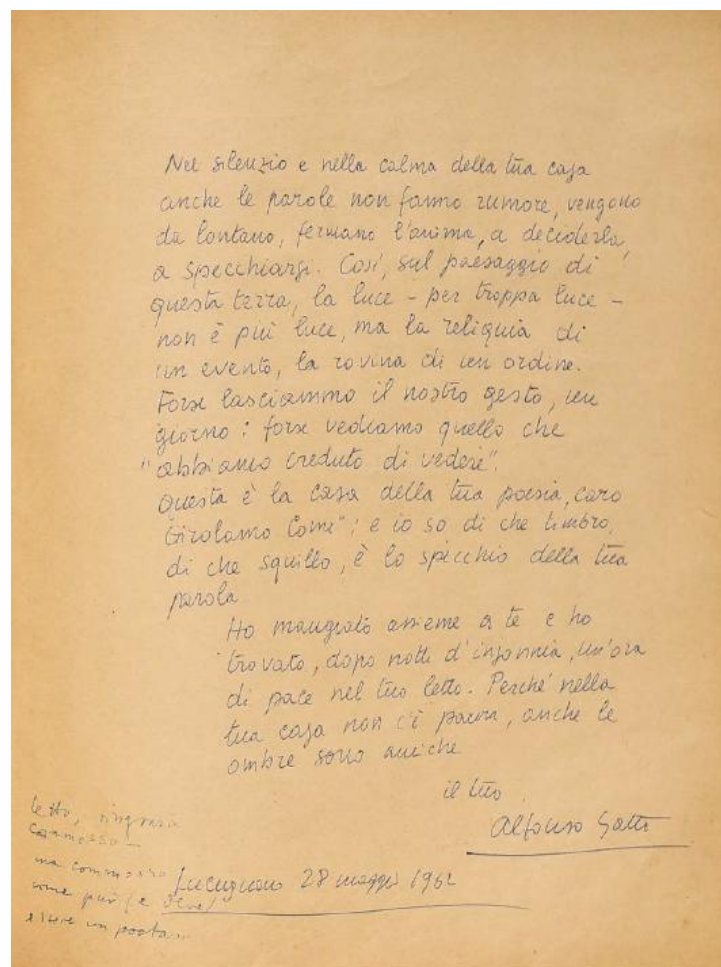 Nel silenzio e nella calma della tua casa
anche le parole non fanno rumore, vengono
da lontano, fermano l'anima, a deciderla,
a specchiarsi. Così, sul paesaggio di
questa terra, la luce - per troppa luce -
non è più luce, ma la reliquia di
un evento, la rovina di un ordine.
Forse lasciammo il nostro gesto, un
giorno: forse vediamo quello che
"abbiamo creduto di vedere".
Questa è la casa della tua poesia, caro
Girolamo Comi"; e io so di che timbro,
di che squillo, è lo specchio della tua
parola.
Ho mangiato assieme a te e ho
trovato, dopo notti d'insonnia, un'ora
di pace nel tuo letto. Perché nella
tua casa non c'è paura, anche le
ombre sono amiche
il tuo
Alfonso Gatto
Lucugnano 28 maggio 1962
letto, ringrazia
commosso -
ma commosso
come può (e deve)
essere un poeta...